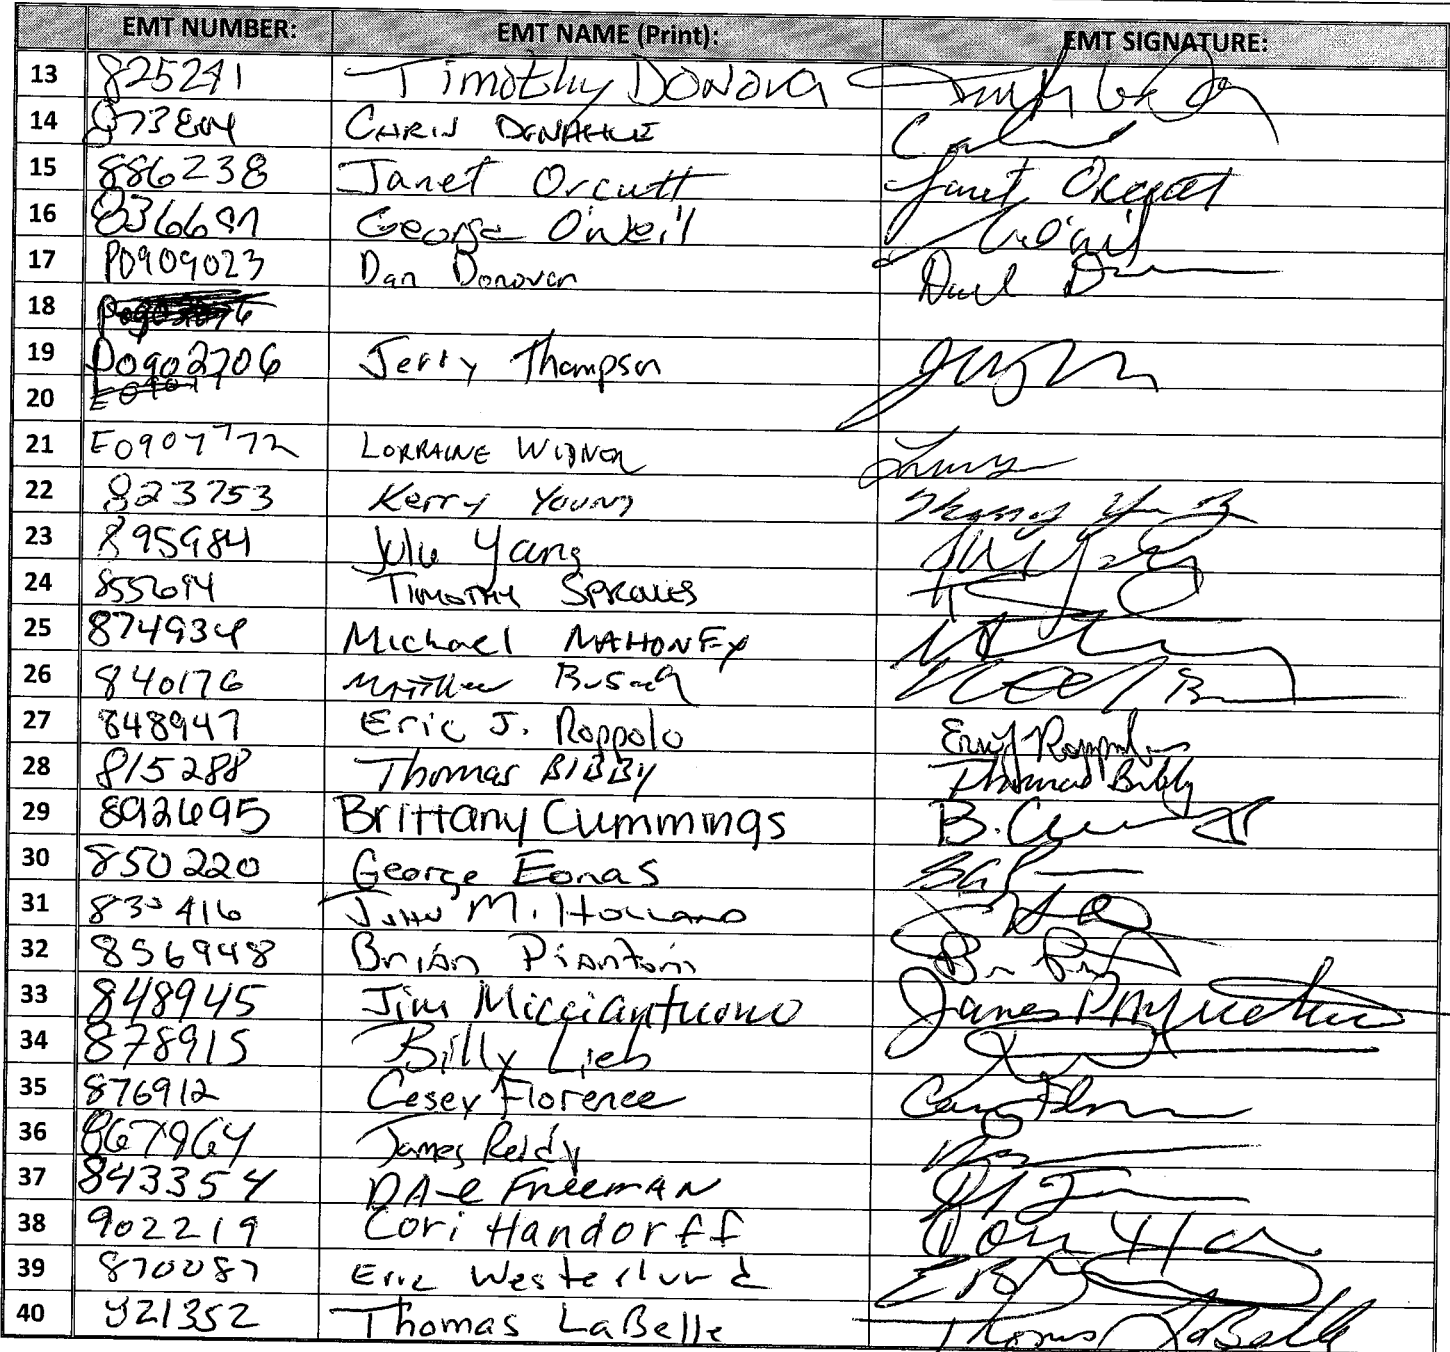 EMT NUMBER: EMT NAME (Print): EMT SIGNATURE:
13 825241 Timothy Donova
14 CHRIS DONAHUE
15 886238 Janet Orcutt Janet Orcutt
16 George O'Neil O'Neil
17 P0909023 Dan Donovan
18
19 P0902706 Jerry Thompson
20
21 E0907772 LORRAINE WIDNER
22 823753 Kerry Young Kerry Young
23 895984 Julie Yang
24 855694 TIMOTHY SPROULES
25 874934 Michael MAHONEY
26 840176 Matthew Busch
27 848947 Eric J. Roppolo Eric J Roppolo
28 815288 Thomas BIBBY Thomas Bibby
29 892695 Brittany Cummings B. Cummings
30 850220 George Eonas
31 830416 John M. Holland
32 856948 Brian Piantoni
33 848945 Jim Micciantuono
34 878915 Billy Lieb
35 876912 Casey Florence
36 867964 James Reidy
37 843354 DALE FREEMAN
38 902219 Cori Handorff
39 870087 Eric Westerlund
40 821352 Thomas LaBelle Thomas LaBelle